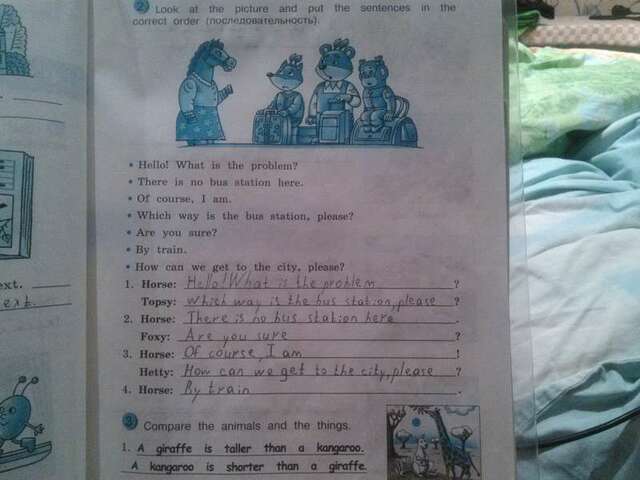 2 Look at the picture and put the sentences in the
correct order (последовательность).
• Hello! What is the problem?
• There is no bus station here.
• Of course, I am.
• Which way is the bus station, please?
• Are you sure?
• By train.
• How can we get to the city, please?
1. Horse: Hello! What is the problem ?
Topsy: Which way is the bus station, please ?
2. Horse: There is no bus station here .
Foxy: Are you sure ?
3. Horse: Of course, I am !
Hetty: How can we get to the city, please ?
4. Horse: By train .
ext.
ext.
3 Compare the animals and the things.
1. A giraffe is taller than a kangaroo.
A kangaroo is shorter than a giraffe.